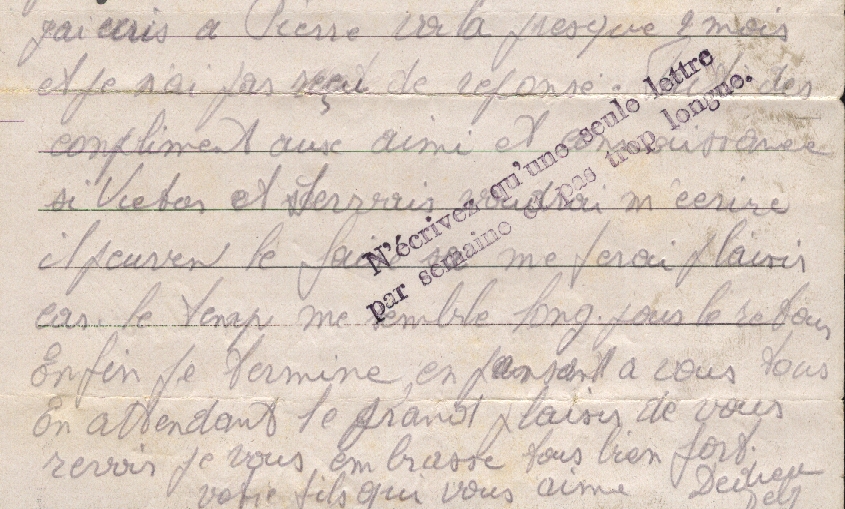 j'ai ecris a Pierre voila presque 2 mois
et je n'ai pas reçu de reponse. Tout des
compliment aux aimi et connaissance
si Victor et voudrai m'ecrire
il peuven le faire sa me ferai plaisir
car le temp me semble long. pour le retour
Enfin je termine en pansant a vous tous
En attendant le grand plaisir de vous
revoir je vous embrasse tous bien fort.
votre fils qui vous aime Dedieu
N'écrivez qu'une seule lettre
par semaine et pas trop longue.